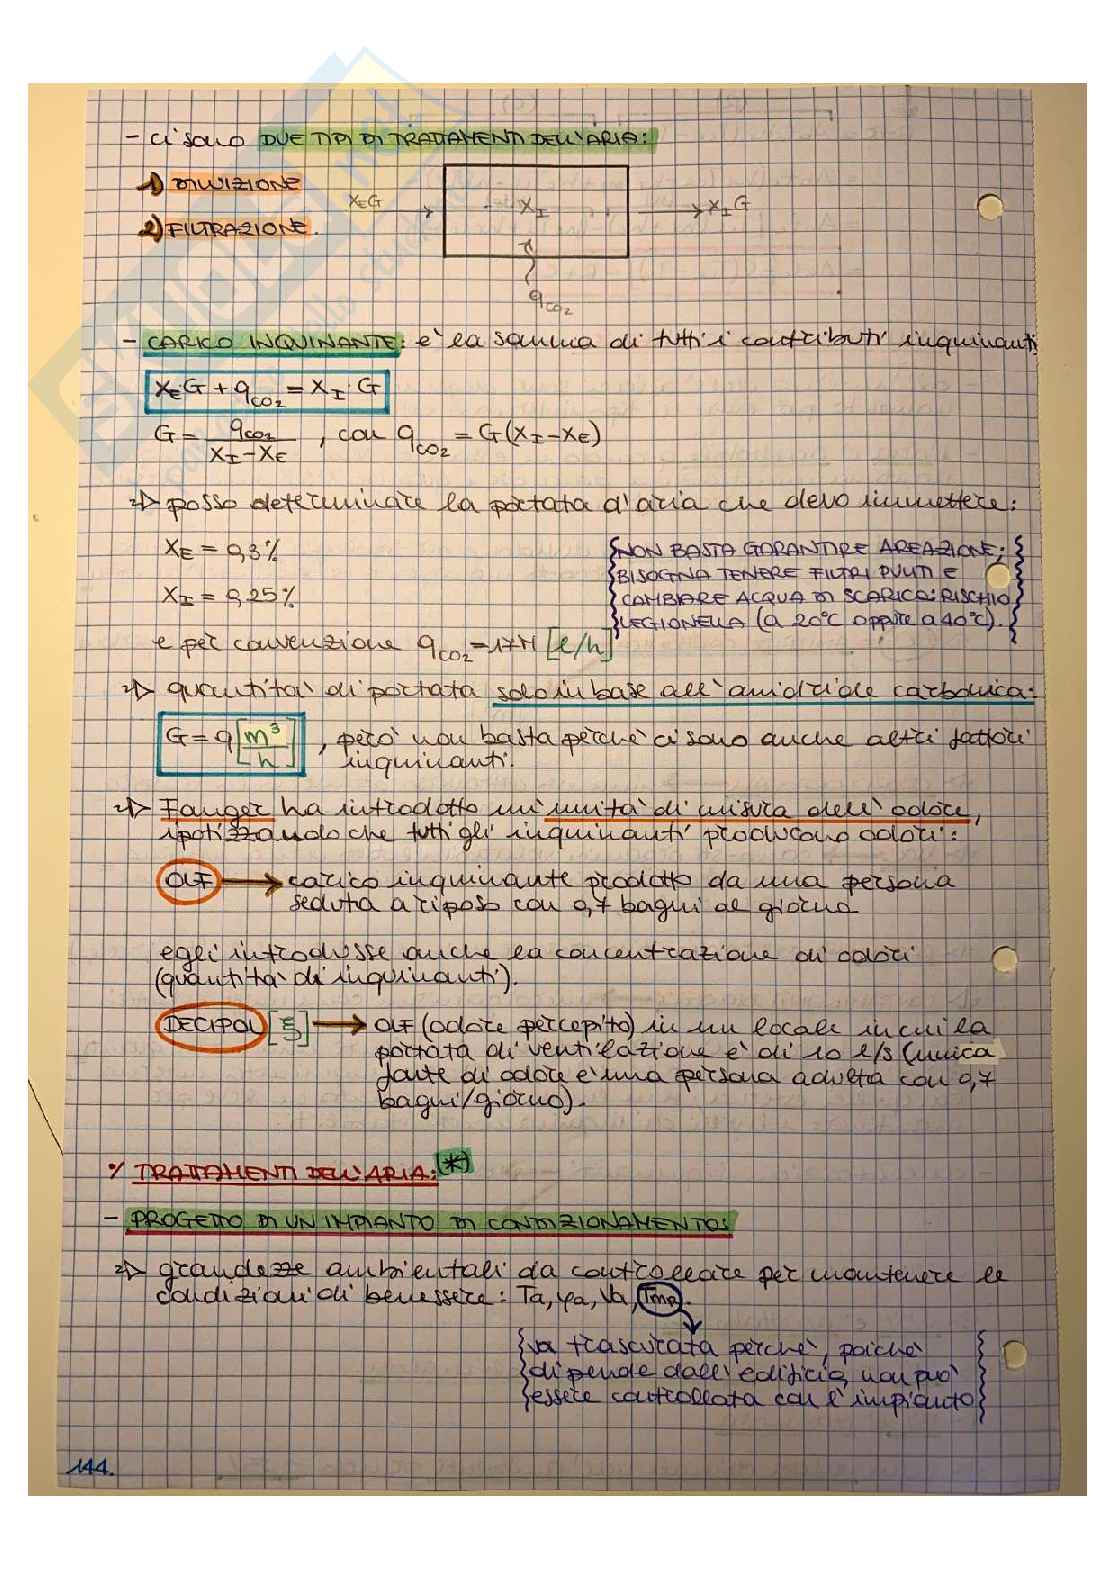 - ci sono DUE TIPI DI TRATTAMENTI DELL'ARIA:
1) DILUIZIONE
2) FILTRAZIONE.
X_E G → X_I → X_I G
q_CO2
- CARICO INQUINANTE: è la somma di tutti i contributi inquinanti
X_E G + q_CO2 = X_I G
G = q_CO2 / (X_I - X_E) , con q_CO2 = G(X_I - X_E)
⇒ posso determinare la portata d'aria che devo immettere:
X_E = 0,3%
X_I = 0,25%
e per convenzione q_CO2 = 17M [l/h]
{NON BASTA GARANTIRE AREAZIONE;}
{BISOGNA TENERE FILTRI PULITI E}
{CAMBIARE ACQUA DI SCARICO: RISCHIO}
{LEGIONELLA (a 20°C oppure a 40°C).}
⇒ quantità di portata solo in base all'anidride carbonica:
G = q [m³/h] , però non basta perché ci sono anche altri fattori
inquinanti.
⇒ Fanger ha introdotto un'unità di misura dell'odore,
ipotizzando che tutti gli inquinanti producono odori:
OLF → carico inquinante prodotto da una persona
seduta a riposo con 0,7 bagni al giorno
egli introdusse anche la concentrazione di odori
(quantità di inquinanti).
DECIPOL [ξ] → OLF (odore percepito) in un locale in cui la
portata di ventilazione è di 10 l/s (unica
fonte di odore è una persona adulta con 0,7
bagni/giorno).
% TRATTAMENTI DELL'ARIA: (*)
- PROGETTO DI UN IMPIANTO DI CONDIZIONAMENTO:
⇒ grandezze ambientali da controllare per mantenere le
condizioni di benessere: Ta, φa, Va, Tmr.
{va trascurata perché, poiché}
{dipende dall'edificio, non può}
{essere controllata con l'impianto}
144.